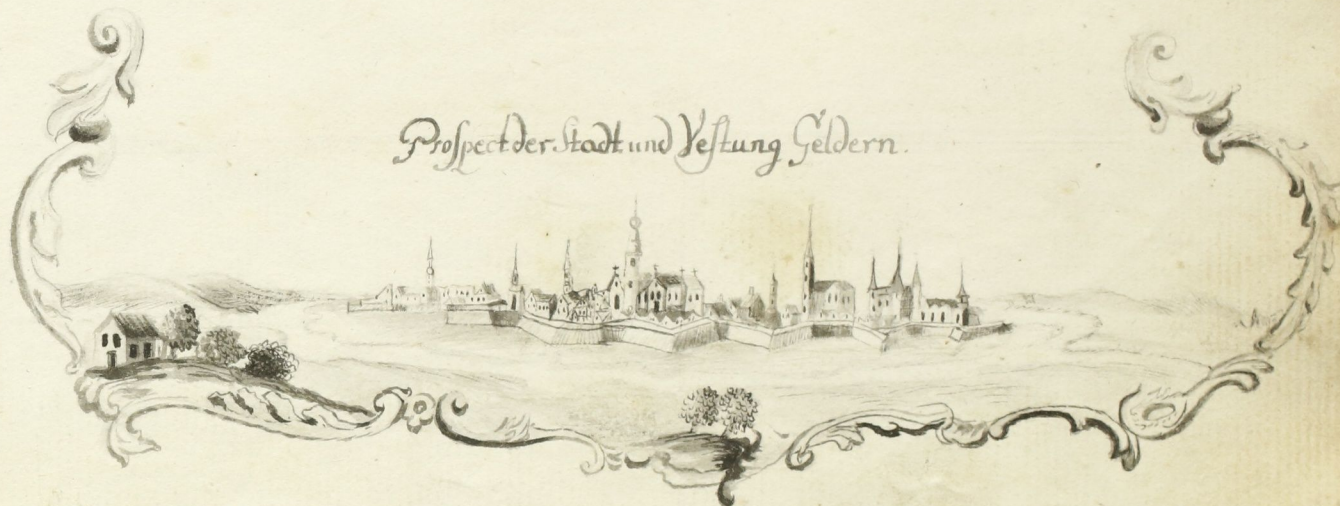 Prospect der Stadt und Vestung Geldern.